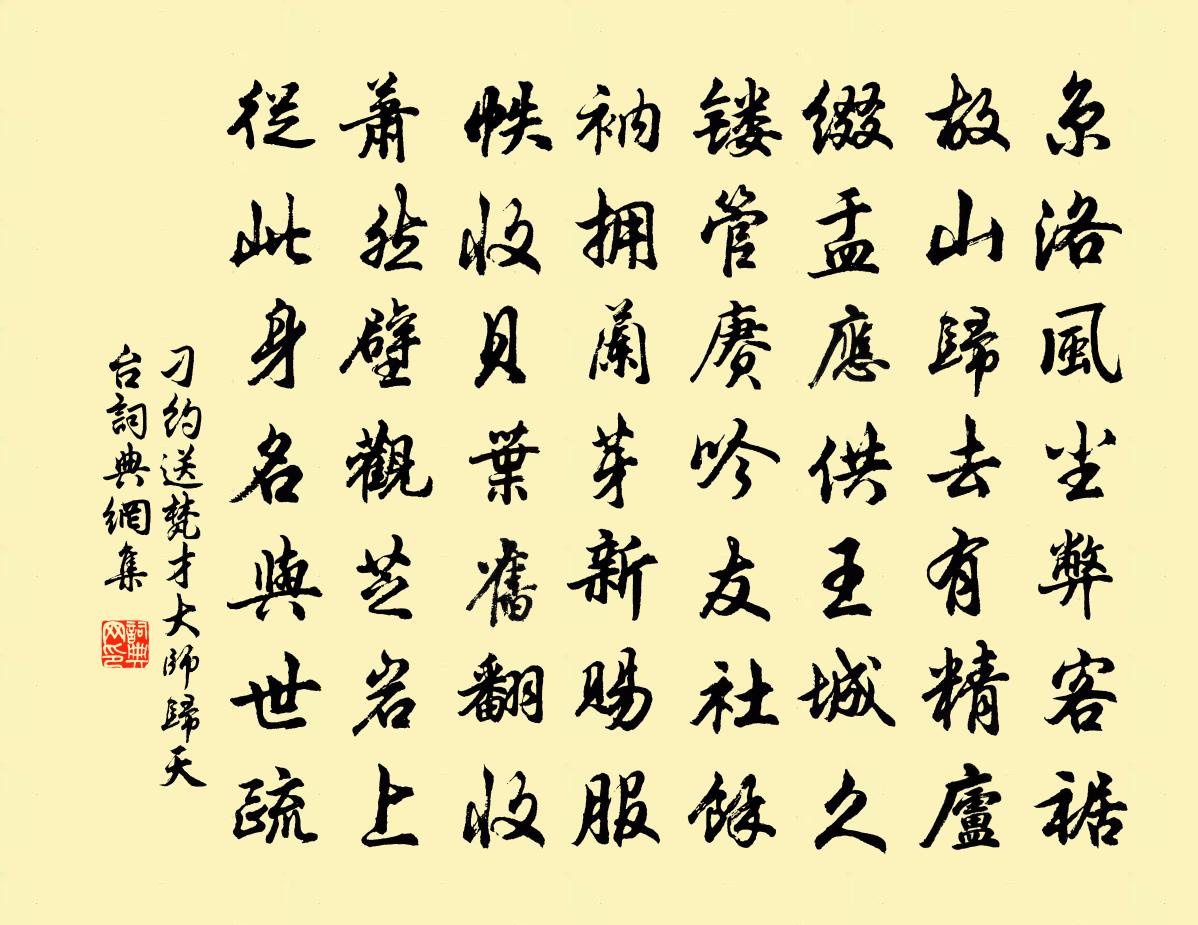 京洛風尘弊客裾
故山歸去有精廬
缀盂應供王城久
镂管赓吟友社餘
衲拥蘭芽新賜服
帙收貝葉舊翻收
蕭然壁觀芝岩上
從此身名與世疏
刁约送梵才大師歸天
台詞典網集
詞典网印